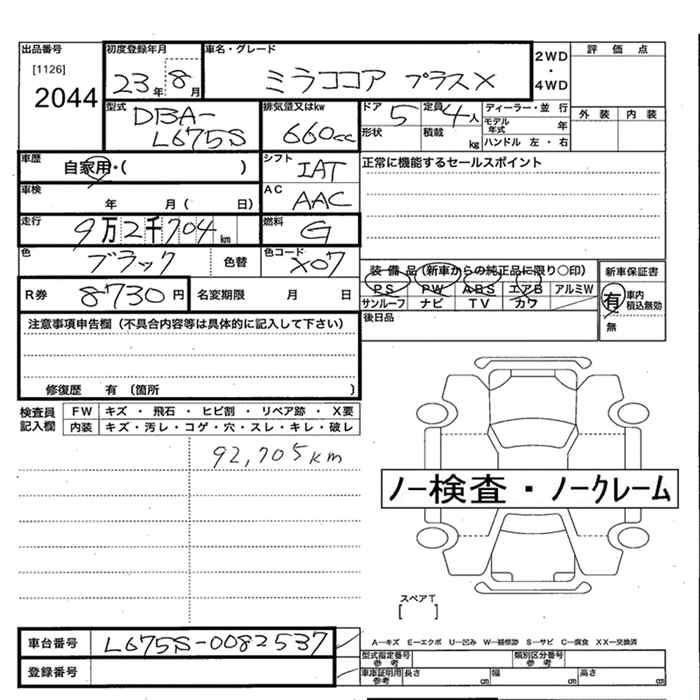 出品番号 初度登録年月 車名・グレード 2WD・4WD 評価点
[1126]
2044
23年 8月 ミラココア プラスX
外装 内装
型式 DBA-L675S
排気量又はkw 660cc
ドア 5 定員 4人 ディーラー・並行
形状 積載 kg モデル年式 年
ハンドル 左・右
車歴 自家用・( )
シフト IAT
正常に機能するセールスポイント
車検 年 月( 日)
AC AAC
走行 9万2千704km
燃料 G
色 ブラック 色替
色コード X07
装備品(新車からの純正品に限り○印) 新車保証書
PS PW ABS エアB アルミW
サンルーフ ナビ TV カワ
有 車内積込無効
無
R券 8730円 名変期限 月 日
後日品
注意事項申告欄(不具合内容等は具体的に記入して下さい)
修復歴 有 (箇所 )
検査員記入欄 FW キズ・飛石・ヒビ割・リペア跡・X要
内装 キズ・汚レ・コゲ・穴・スレ・キレ・破レ
92,705km
ノー検査・ノークレーム
スペアT
[ ]
車台番号 L675S-0082537
A―キズ E―エクボ U―凹み W―補修跡 S―サビ C―腐食 XX―交換済
型式指定番号 参考 類別区分番号 参考
登録番号
車庫証明用 参考 長さ cm 幅 cm 高さ cm